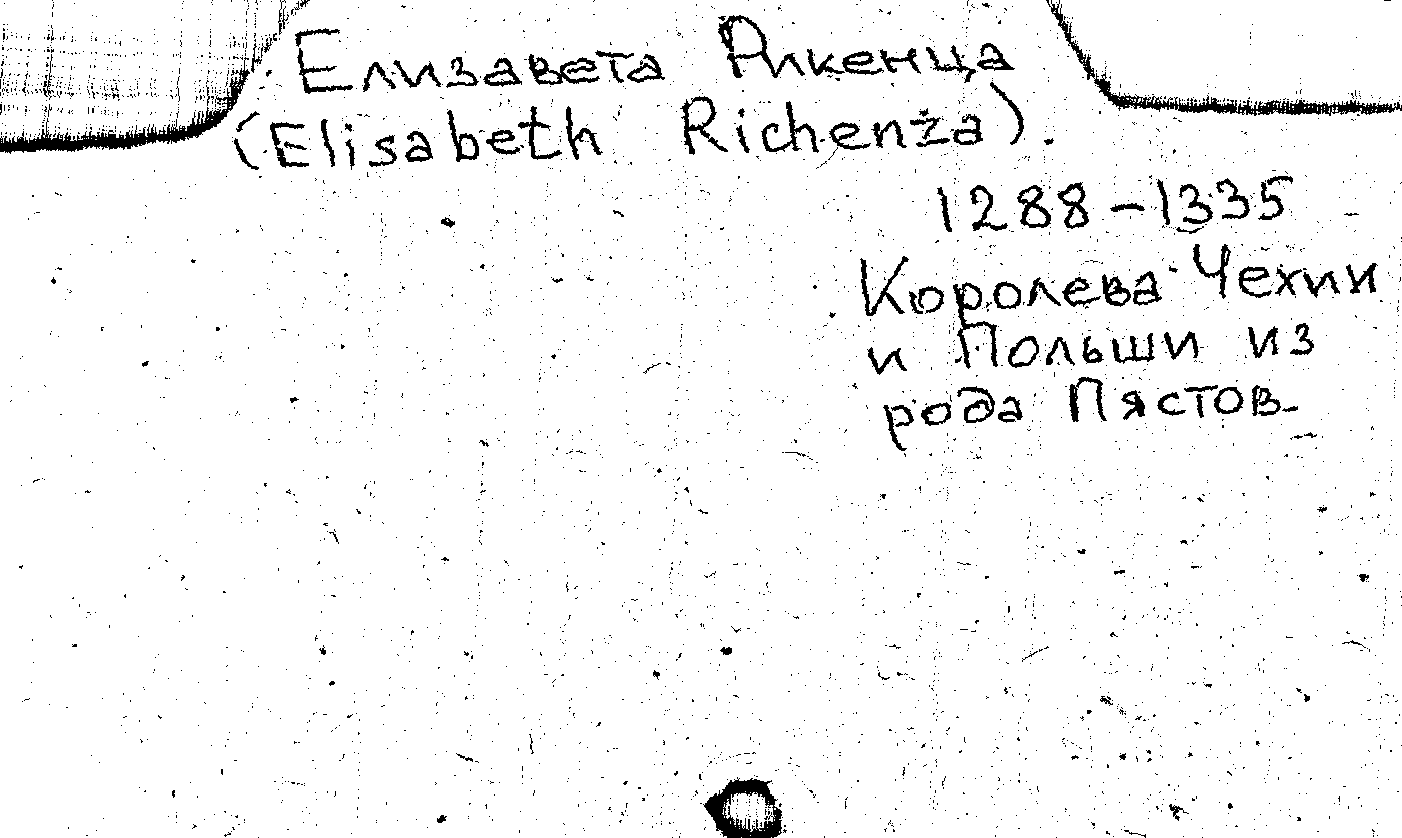 Елизавета Рикенца
(Elisabeth Richenża).
1288-1335
Королева Чехии
и Польши из
рода Пястов